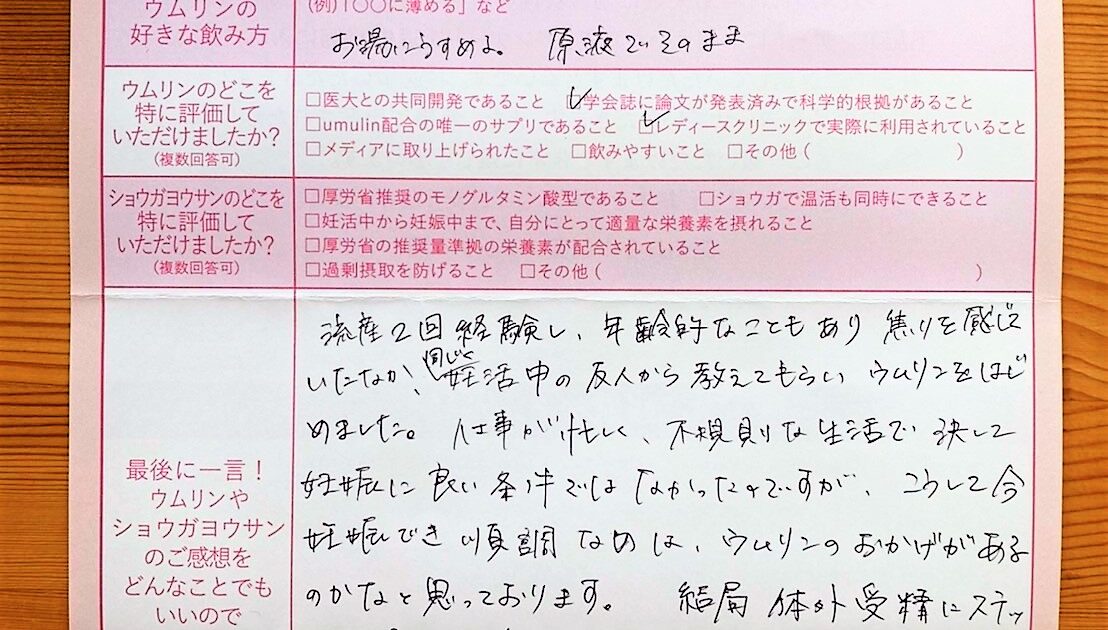 ウムリンの
好きな飲み方
(例)「〇〇に薄める」など
お湯にうすめる。 原液でそのまま
ウムリンのどこを
特に評価して
いただけましたか?
(複数回答可)
□医大との共同開発であること ☑学会誌に論文が発表済みで科学的根拠があること
□umulin配合の唯一のサプリであること ☑レディースクリニックで実際に利用されていること
□メディアに取り上げられたこと □飲みやすいこと □その他( )
ショウガヨウサンのどこを
特に評価して
いただけましたか?
(複数回答可)
□厚労省推奨のモノグルタミン酸型であること □ショウガで温活も同時にできること
□妊活中から妊娠中まで、自分にとって適量な栄養素を摂れること
□厚労省の推奨量準拠の栄養素が配合されていること
□過剰摂取を防げること □その他( )
最後に一言!
ウムリンや
ショウガヨウサン
のご感想を
どんなことでも
いいので
流産2回経験し、年齢的なこともあり焦りを感じて
いたなか、同じく妊活中の友人から教えてもらいウムリンをはじ
めました。仕事が忙しく、不規則な生活で決して
妊娠に良い条件ではなかったのですが、こうして今
妊娠でき順調なのは、ウムリンのおかげがある
のかなと思っております。 結局体外受精にステッ